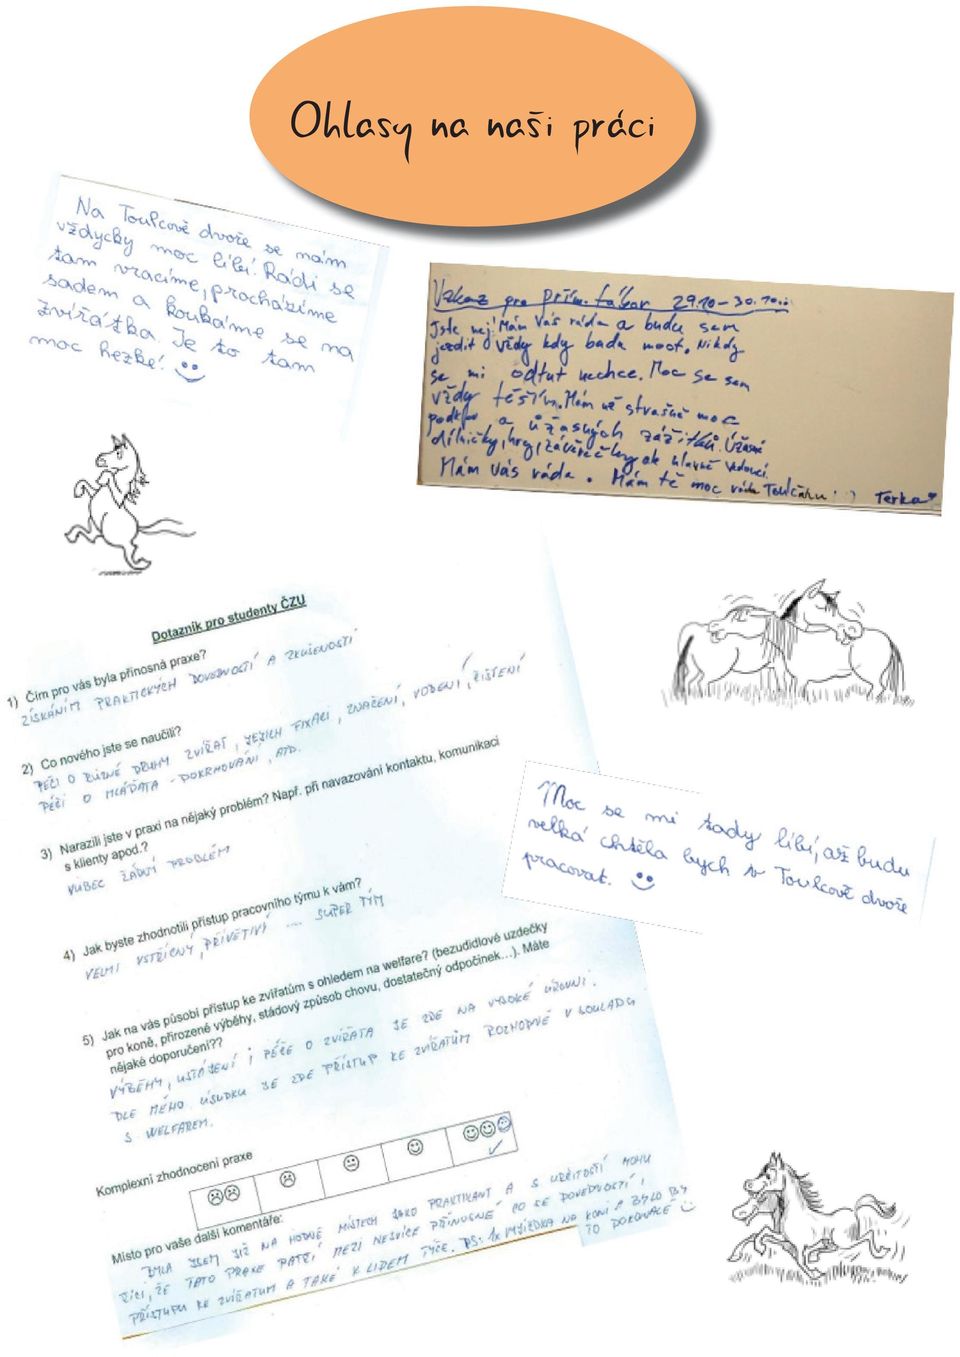 Ohlasy na naši práci
Na Toulcově dvoře se nám
vždycky moc líbí. Rádi se
tam vracíme, procházíme
sadem a koukáme se na
zvířátka. Je to tam
moc hezké!
Vzkaz pro přím. tábor 29.10-30.10..
Jste nej! Mám Vás ráda a budu sem
jezdit vždy kdy budu moct. Nikdy
se mi odtut nechce. Moc se sem
vždy těším. Mám už strašně moc
a úžasných zážitků. Úžasné
dílničky, hry, hlavně vedoucí.
Mám vás ráda. Mám tě moc ráda Toulcáku! :) Terka
Dotazník pro studenty ČZU
1) Čím pro vás byla přínosná praxe?
ZÍSKÁNÍM PRAKTICKÝCH DOVEDNOSTÍ A ZKUŠENOSTÍ
2) Co nového jste se naučili?
PÉČI O RŮZNÉ DRUHY ZVÍŘAT, JEJICH FIXACI, ZNAČENÍ, VODĚNÍ, ČIŠTĚNÍ
PÉČI O MLÁĎATA - DOKRMOVÁNÍ, ATD.
3) Narazili jste v praxi na nějaký problém? Např. při navazování kontaktu, komunikaci
s klienty apod.?
VŮBEC ŽÁDNÝ PROBLÉM
4) Jak byste zhodnotili přístup pracovního týmu k vám?
VELMI VSTŘÍCNÝ, PŘÍVĚTIVÝ ... SUPER TÝM
5) Jak na vás působí přístup ke zvířatům s ohledem na welfare? (bezudidlové uzdečky
pro koně, přirozené výběhy, stádový způsob chovu, dostatečný odpočinek…). Máte
nějaké doporučení??
VÝBĚHY, USTÁJENÍ I PÉČE O ZVÍŘATA JE ZDE NA VYSOKÉ ÚROVNI.
DLE MÉHO ÚSUDKU JE ZDE PŘÍSTUP KE ZVÍŘATŮM ROZHODNĚ V SOULADU
S WELFAREM.
Komplexní zhodnocení praxe
Místo pro vaše další komentáře:
BYLA JSEM JIŽ NA HODNĚ MÍSTECH JAKO PRAKTIKANT A S URČITOSTÍ MOHU
ŘÍCI, ŽE TATO PRAXE PATŘÍ MEZI NEJVÍCE PŘÍNOSNÉ CO SE DOVEDNOSTÍ,
PŘÍSTUPU KE ZVÍŘATUM A TAKÉ K LIDEM TÝČE. PS: 1x VYJÍŽĎKA NA KONI A BYLO BY
TO DOKONALÉ
Moc se mi tady líbí, až budu
velká chtěla bych v Toulcově dvoře
pracovat.